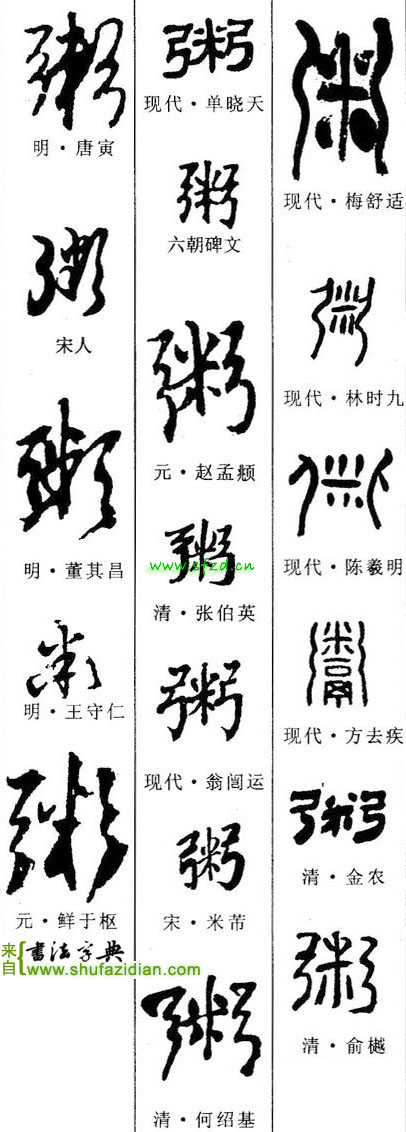 粥
现代·梅舒适
粥
现代·林时九
粥
现代·陈羲明
鬻
现代·方去疾
粥
清·金农
粥
清·俞樾
粥
现代·单晓天
粥
六朝碑文
粥
元·赵孟頫
粥
清·张伯英
www.sfzd.cn
粥
现代·翁闿运
粥
宋·米芾
粥
清·何绍基
粥
明·唐寅
粥
宋人
粥
明·董其昌
粥
明·王守仁
粥
元·鲜于枢
来自{书法字典
www.shufazidian.com